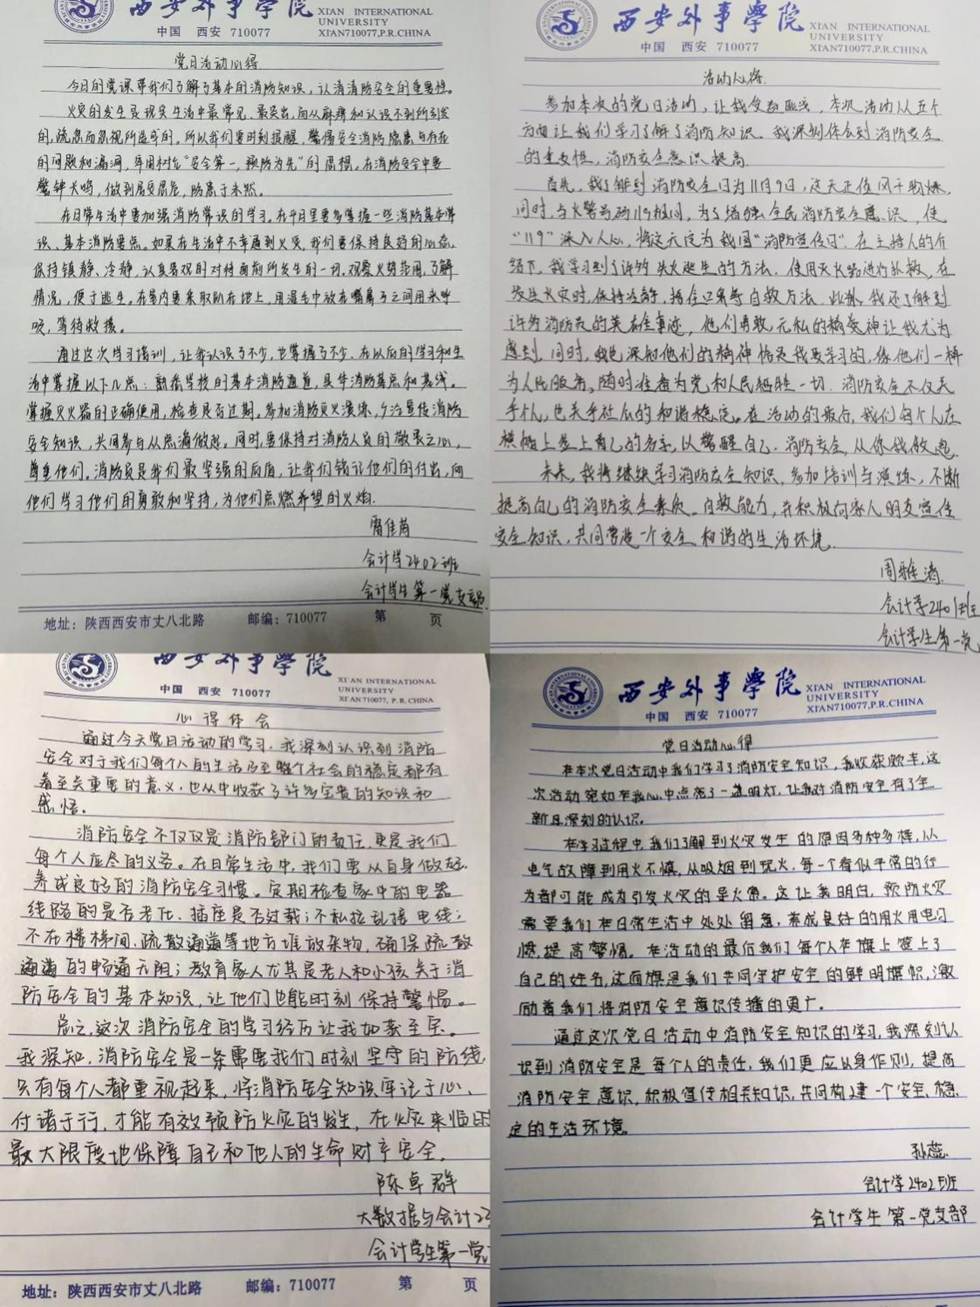 西安外事學院
XIAN INTERNATIONAL
UNIVERSITY
中国 西安 710077
XIAN710077,P.R.CHINA
党日活动心得
今日的党课带我们了解了基本的消防知识，认清消防安全的重要性。
火灾的发生是现实生活中最常见、最突出，而从麻痹和认识不到所引发
的，疏忽而忽视所造成的，所以我们要时刻提醒，警惕安全消防隐患与存在
的问题和漏洞，牢固树立“安全第一，预防为先”的思想。在消防安全中要
警钟长鸣，做到居安思危，防患于未然。
在日常生活中要加强消防常识的学习，在平日里要多掌握一些消防基本常
识、基本消防要点。如果在生活中不幸遇到火灾，我们要保持良好的心态，
保持镇静、冷静，认真客观的对待面前所发生的一切，观察火势范围，了解
情况，便于逃生。在室内要采取趴在地上，用湿毛巾放在嘴鼻子之间用来呼
吸，等待救援。
通过这次学习培训，让我认识了不少，也掌握了不少，在以后的学习和生
活中掌握以下几点：熟悉学校的基本消防通道，具体消防基点和基线。
掌握灭火器的正确使用，检查是否过期。参加消防灭火演练，多沟宣传消防
安全知识，共同参与从点滴做起。同时，要保持对消防人员的敬畏之心，
尊重他们。消防员是我们最坚强的后盾，让我们铭记他们的付出，向
他们学习他们的勇敢和坚持，为他们点燃希望的火焰。
佳茵
会计学2402班
会计学生第一党支部
地址：陕西西安市丈八北路 邮编：710077 第 页
西安外事學院
XIAN INTERNATIONAL
UNIVERSITY
中国 西安 710077
XIAN710077,P.R.CHINA
活动心得
参加本次的党日活动，让我受益匪浅，本次活动从五个
方面让我们学习了解了消防知识。我深刻体会到消防安全
的重要性，消防安全意识提高。
首先，我了解到消防安全日为11月9日，这天正值风干物燥，
同时，与火警号码119相同，为了增强全民消防安全意识，使
“119”深入人心，将这天定为我国“消防宣传日”。在主持人的介
绍下，我学习到了许多火灾逃生的方法，使用灭火器进行扑救，在
发生火灾时，保持冷静，捂住口鼻等自救方法。此外，我还了解到
许多消防员的英雄事迹，他们勇敢、无私的精神让我尤为
感动，同时，我也深知他们的精神恰是我要学习的，像他们一样
为人民服务，随时准备为党和人民牺牲一切。消防安全不仅关
乎个人，也关乎社会的和谐稳定。在活动的最后，我们每个人在
旗帜上签上自己的名字，以警醒自己，消防安全，从你我做起。
未来，我将继续学习消防安全知识，参加培训与演练，不断
提高自己的消防安全素质、自救能力，并积极向家人朋友宣传
安全知识，共同营造一个安全和谐的生活环境。
周雅清
会计学2401班
会计学生第一党
西安外事學院
XIAN INTERNATIONAL
UNIVERSITY
中国 西安 710077
XIAN710077,P.R.CHINA
心得体会
通过今天党日活动的学习，我深刻认识到消防
安全对于我们每个人的生活乃至整个社会的稳定都有
着至关重要的意义，也从中收获了许多宝贵的知识和
感悟。
消防安全不仅仅是消防部门的责任，更是我们
每个人应尽的义务。在日常生活中，我们要从自身做起，
养成良好的消防安全习惯。定期检查家中的电器
线路的是否老化，插座是否过载；不私拉乱接电线；
不在楼梯间，疏散通道等地方堆放杂物，确保疏散
通道的畅通无阻；教育家人尤其是老人和小孩关于消
防安全的基本知识，让他们也能时刻保持警惕。
总之，这次消防安全的学习经历让我如获至宝。
我深知，消防安全是一条需要我们时刻坚守的防线，
只有每个人都重视起来，将消防安全知识牢记于心、
付诸于行，才能有效预防火灾的发生，在火灾来临时
最大限度地保障自己和他人的生命财产安全。
陈卓群
大数据与会计23
会计学生第一党
地址：陕西西安市丈八北路 邮编：710077 第 页
西安外事學院
XIAN INTERNATIONAL
UNIVERSITY
中国 西安 710077
XIAN710077,P.R.CHINA
党日活动心得
在本次党日活动中我们学习了消防安全知识，我收获颇丰，这
次活动宛如在我心中点亮了一盏明灯，让我对消防安全有了全
新且深刻的认识。
在学习过程中，我们了解到火灾发生的原因多种多样，从
电气故障到用火不慎，从吸烟到玩火，每一个看似平常的行
为都可能成为引发火灾的导火索。这让我明白，预防火灾
需要我们在日常生活中处处留意，养成良好的用火用电习
惯，提高警惕。在活动的最后我们每个人在旗上签上了
自己的姓名，这面旗是我们共同守护安全的鲜明旗帜，激
励着我们将消防安全意识传播的更广。
通过这次党日活动中消防安全知识的学习，我深刻认
识到消防安全是每个人的责任，我们更应以身作则，提高
消防安全意识，积极宣传相关知识，共同构建一个安全、稳
定的生活环境。
孙蕊
会计学2402班
会计学生第一党支部